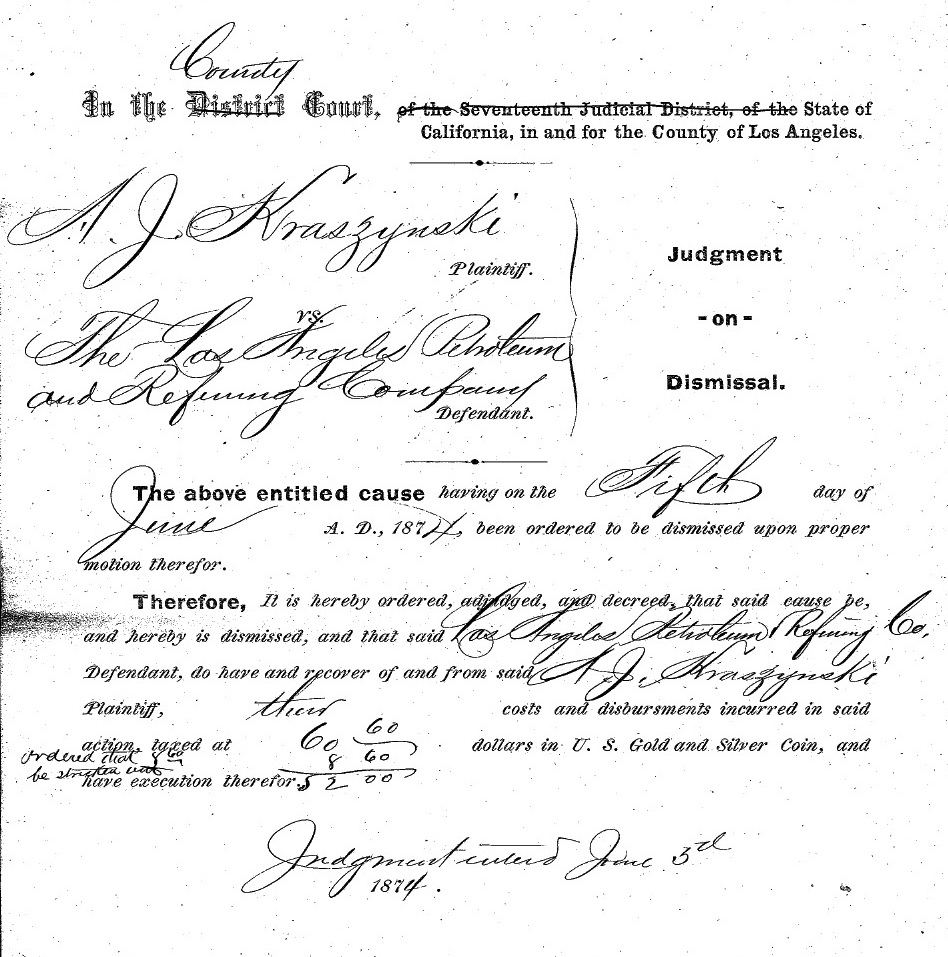 County
In the District Court, of the Seventeenth Judicial District, of the State of
California, in and for the County of Los Angeles.
A. J. Kraszynski
Plaintiff.
vs.
The Los Angeles Petroleum
and Refining Company
Defendant.
Judgment
- on -
Dismissal.
The above entitled cause having on the Fifth day of
June A. D., 1874, been ordered to be dismissed upon proper
motion therefor.
Therefore, It is hereby ordered, adjudged, and decreed, that said cause be,
and hereby is dismissed, and that said Los Angeles Petroleum Refining Co.
Defendant, do have and recover of and from said A. J. Kraszynski
Plaintiff, their costs and disbursments incurred in said
action, taxed at 60 60 dollars in U. S. Gold and Silver Coin, and
ordered that 8 60 8 60
be stricken out
have execution therefor. 52 00
Judgment entered June 5th
1874.